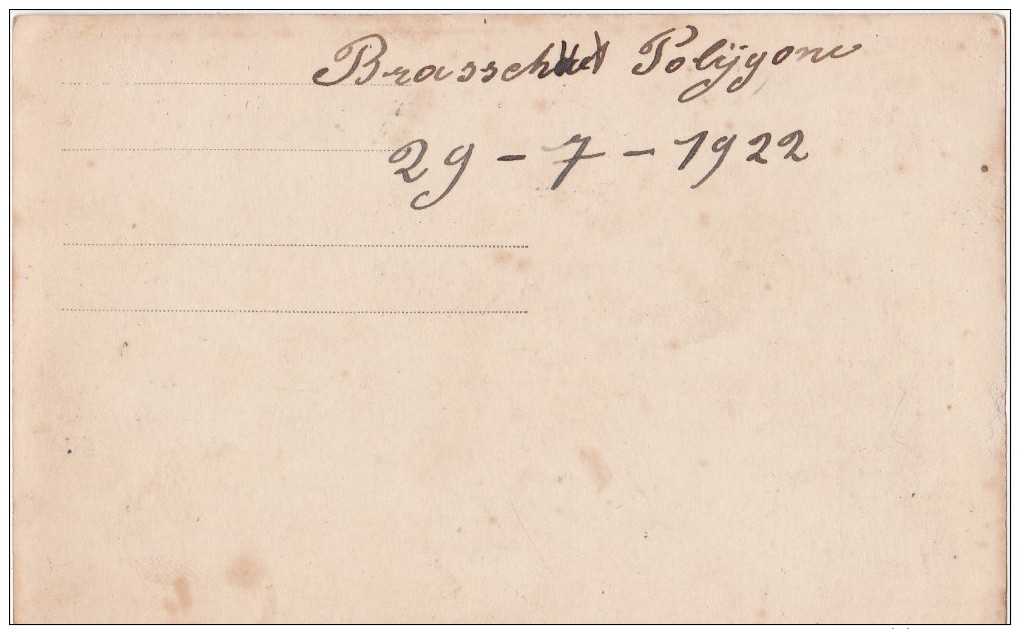 Brasschaet Polijgone
29 - 7 - 1922